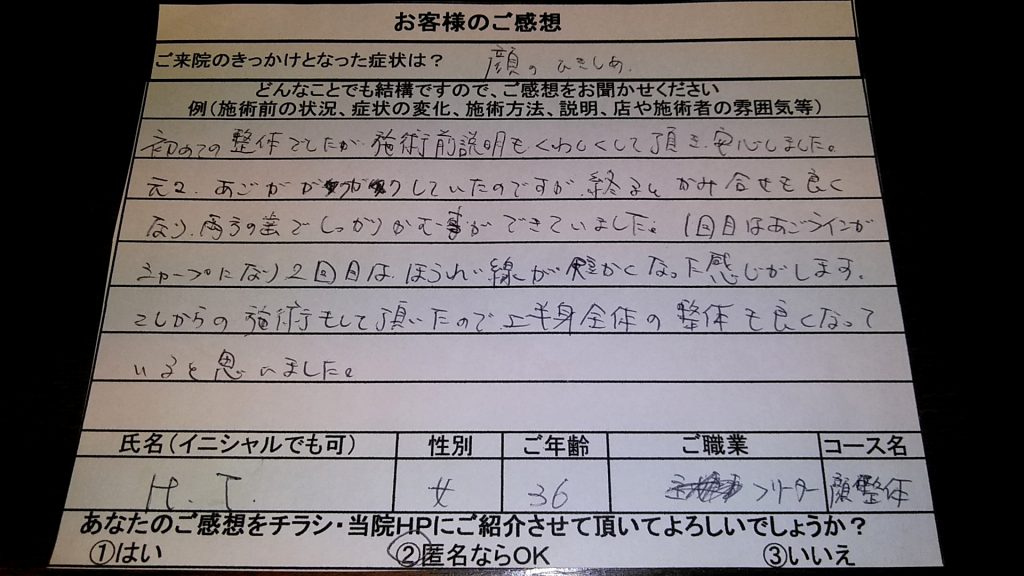 お客様のご感想
ご来院のきっかけとなった症状は? 顔のひきしめ
どんなことでも結構ですので、ご感想をお聞かせください
例(施術前の状況、症状の変化、施術方法、説明、店や施術者の雰囲気等)
初めての整体でしたが施術前説明もくわしくして頂き、安心しました。
元々、あごががクガクしていたのですが、終ると かみ合せも良く
なり、両方の歯でしっかりかむ事ができていました。1回目はあごラインが
シャープになり2回目は、ほうれい線が かくなった感じがします。
こしからの施術もして頂いたので上半身全体の整体も良くなって
いると思いました。
氏名(イニシャルでも可) 性別 ご年齢 ご職業 コース名
H.T. 女 36 フリーター 顔整体
あなたのご感想をチラシ・当院HPにご紹介させて頂いてよろしいでしょうか?
①はい ②匿名ならOK ③いいえ